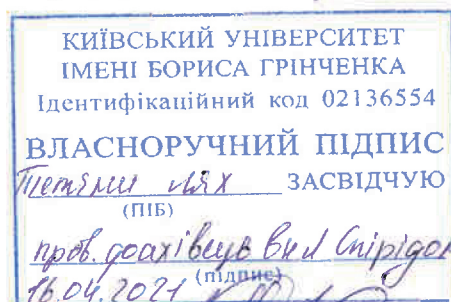 КИЇВСЬКИЙ УНІВЕРСИТЕТ
ІМЕНІ БОРИСА ГРІНЧЕНКА
Ідентифікаційний код 02136554
ВЛАСНОРУЧНИЙ ПІДПИС
Тетяни Лях ЗАСВІДЧУЮ
(ПІБ)
пров. фахівець
(підпис)
16.04.2021